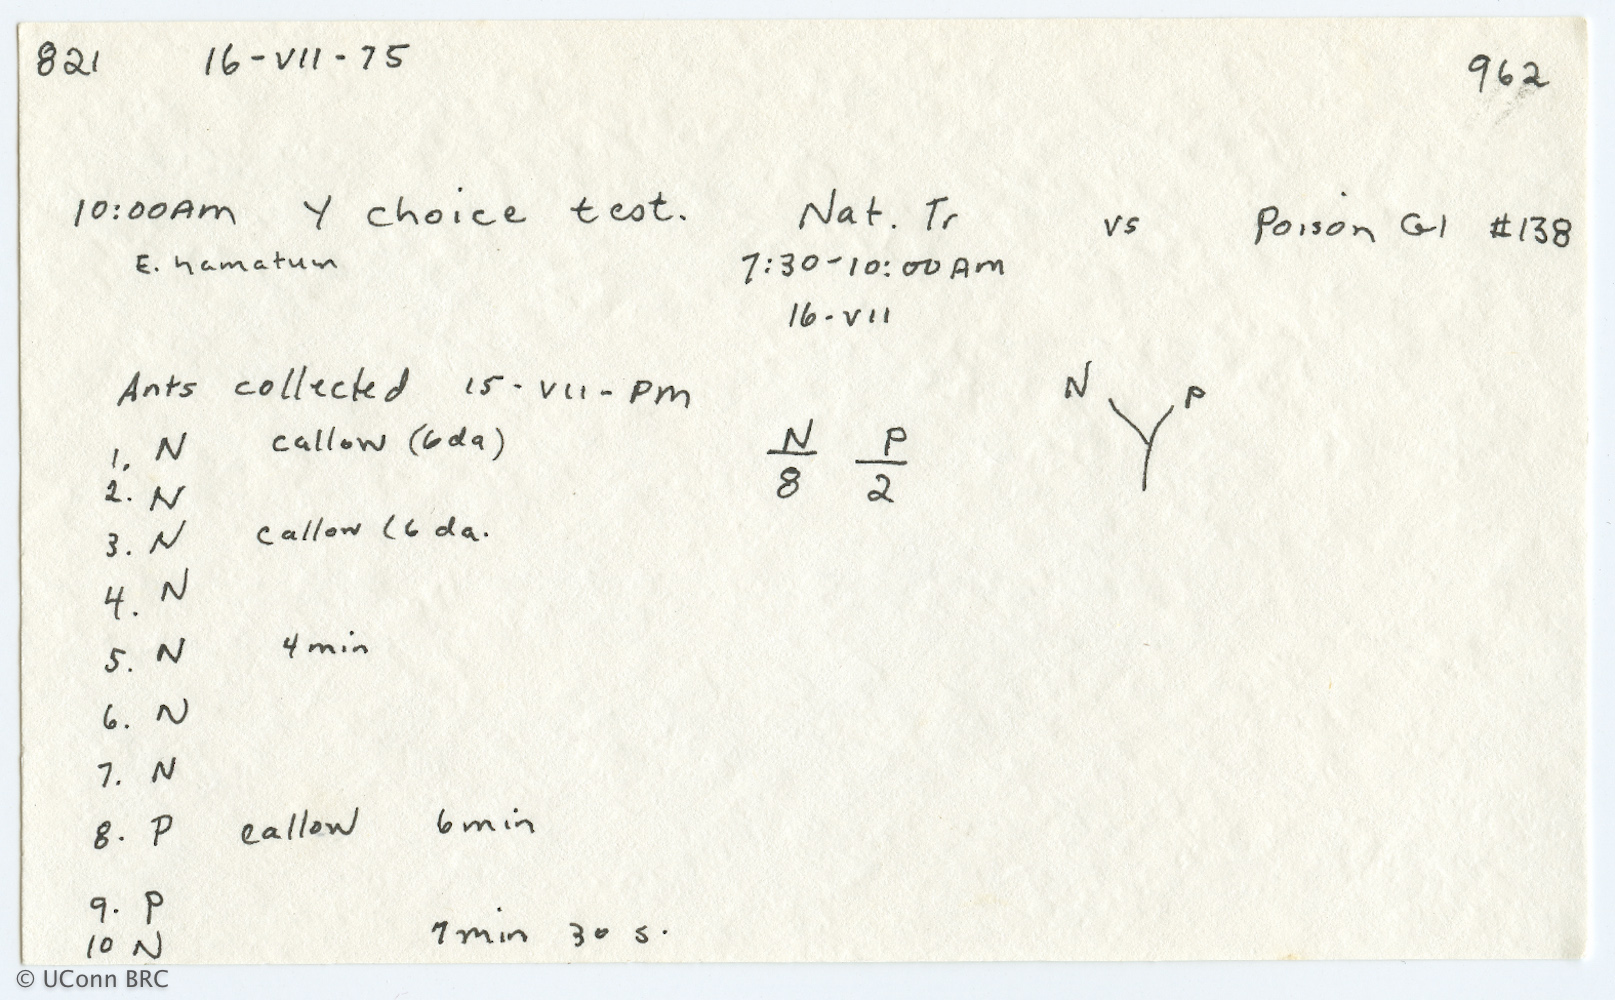 821 16-VII-75 962
10:00AM Y choice test. Nat. Tr vs Poison Gl #138
E. hamatum 7:30-10:00 AM
16-VII
Ants collected 15-VII-PM
N P
1. N callow (6da) N P
2. N 8 2
3. N callow (6 da.
4. N
5. N 4 min
6. N
7. N
8. P callow 6 min
9. P
10 N 7 min 30 s.
© UConn BRC